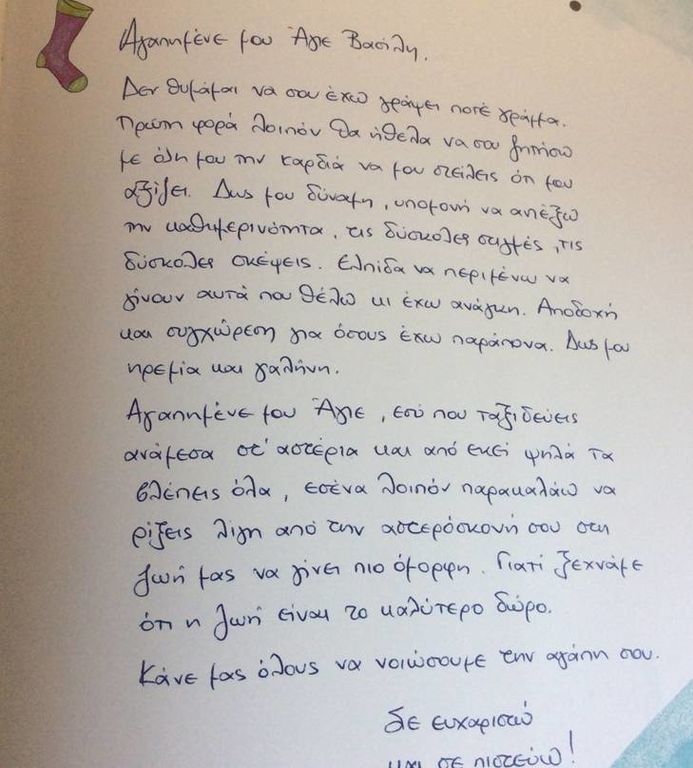 Αγαπημένε μου Άγιε Βασίλη,
Δεν θυμάμαι να σου έχω γράψει ποτέ γράμμα.
Πρώτη φορά λοιπόν θα ήθελα να σου ζητήσω
με όλη μου την καρδιά να μου στείλεις ότι μου
αξίζει. Δως μου δύναμη, υπομονή να αντέξω
την καθημερινότητα, τις δύσκολες στιγμές, τις
δύσκολες σκέψεις. Ελπίδα να περιμένω να
γίνουν αυτά που θέλω κι έχω ανάγκη. Αποδοχή
και συγχώρεση για όσους έχω παράπονα. Δως μου
ηρεμία και γαλήνη.
Αγαπημένε μου Άγιε, εσύ που ταξιδεύεις
ανάμεσα στ' αστέρια και από εκεί ψηλά τα
βλέπεις όλα, εσένα λοιπόν παρακαλάω να
ρίξεις λίγη από την αστερόσκονή σου στη
ζωή μας να γίνει πιο όμορφη. Γιατί ξεχνάμε
ότι η ζωή είναι το καλύτερο δώρο.
Κάνε μας όλους να νοιώσουμε την αγάπη σου.
Σε ευχαριστώ
και σε πιστεύω!